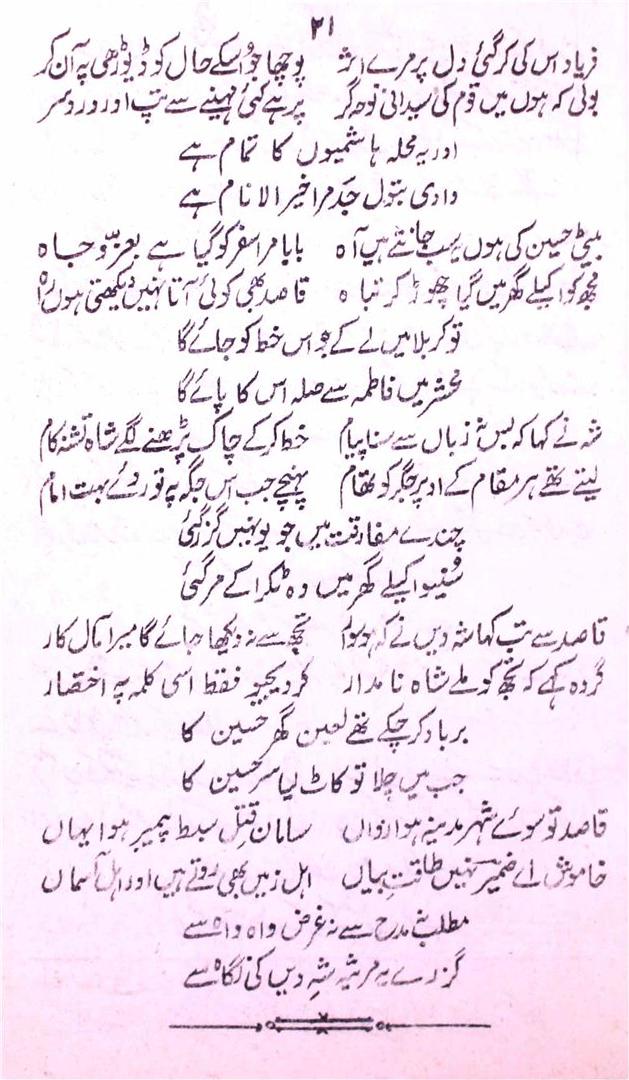 ۲۱
فریاد اس کی کر گئی دل پر مرے اثر پوچھا جو اسکے حال کو ڈیوڑھی پہ آن کر
بولی کہ ہوں میں قوم کی سیدانی نوحہ گر پر ہے کئی مہینے سے تپ اور درد سر
اور یہ محلہ ہاشمیوں کا تمام ہے
دادی بتول جد مرا خیر الانام ہے
بیٹی حسین کی ہوں یہ سب جانتے ہیں آہ بابا مرا سفر کو گیا ہے بعز و جاہ
مجھ کو اکیلے گھر میں گیا چھوڑ کر تباہ قاصد بھی کوئی آتا نہیں دیکھتی ہوں راہ
تو کربلا میں لے کے جو اس خط کو جائے گا
محشر میں فاطمہ سے صلہ اس کا پائے گا
شہ نے کہا کہ بس نہ زباں سے سنا پیام خط کر کے چاک پڑھنے لگے شاہ تشنہ کام
لیتے تھے ہر مقام کے اوپر جگر کو تھام پہنچے جب اس جگہ پہ تو روئے بہت امام
چندے مفارقت میں جو یونہیں گزر گئی
سنیو اکیلے گھر میں وہ ٹکرا کے مر گئی
قاصد سے تب کہا شہ دیں نے کہ ہو سوار تجھ سے نہ دیکھا جائے گا میرا مآل کار
گر وہ کہے کہ تجھ کو ملے شاہ نامدار کر دیجیو فقط اسی کلمہ پہ اختصار
برباد کر چکے تھے لعین گھر حسین کا
جب میں چلا تو کاٹ لیا سر حسین کا
قاصد تو سوئے شہر مدینہ ہوا رواں سامان قتلِ سبط پیمبر ہوا یہاں
خاموش اے ضمیر نہیں طاقتِ بیاں اہل زمیں بھی روتے ہیں اور اہل آسماں
مطلب نہ مدح سے نہ غرض واہ واہ سے
گزرے یہ مرثیہ شہِ دیں کی نگاہ سے